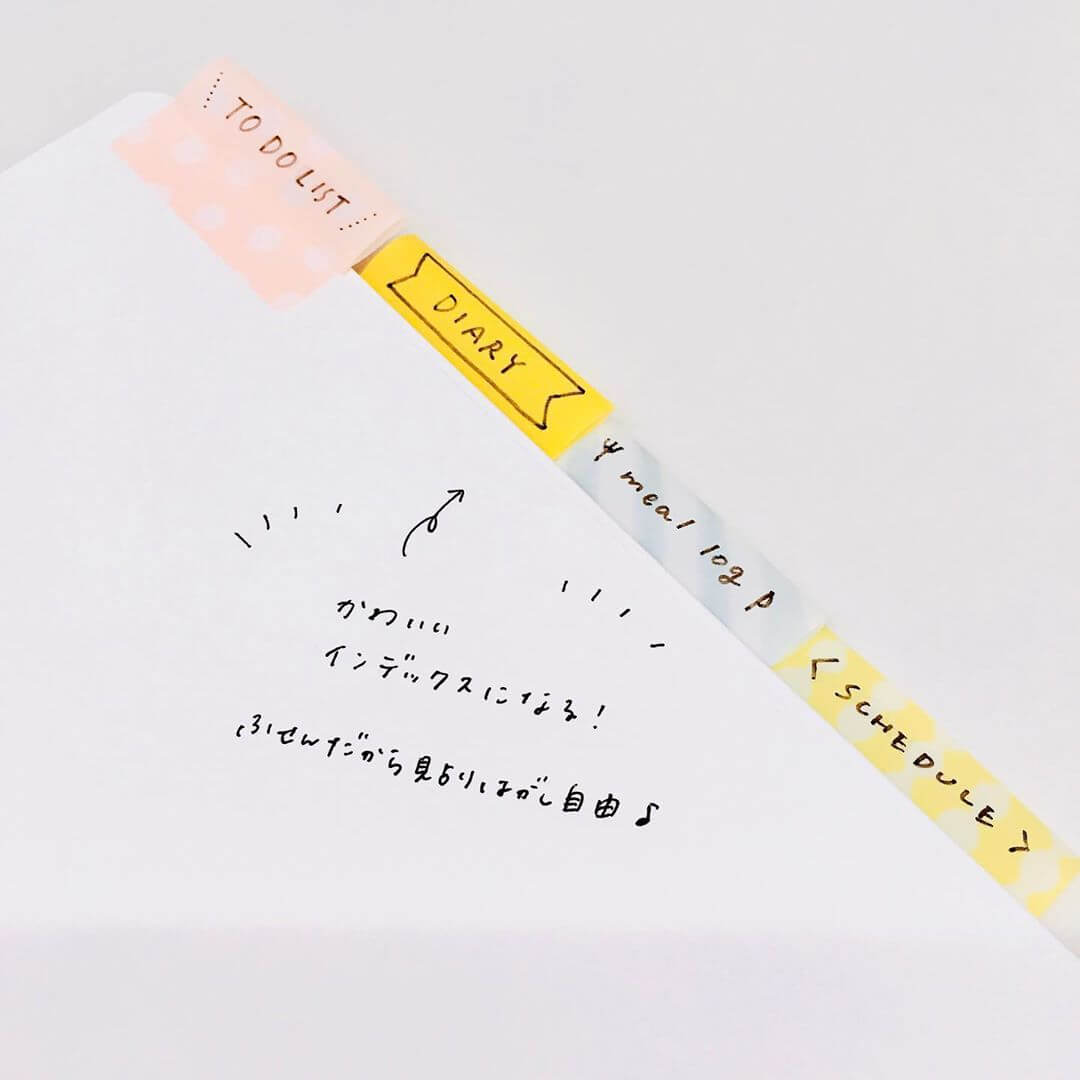 TO DO LIST
DIARY
meal log
SCHEDULE
かわいい
インデックスになる!
ふせんだから貼りはがし自由♪